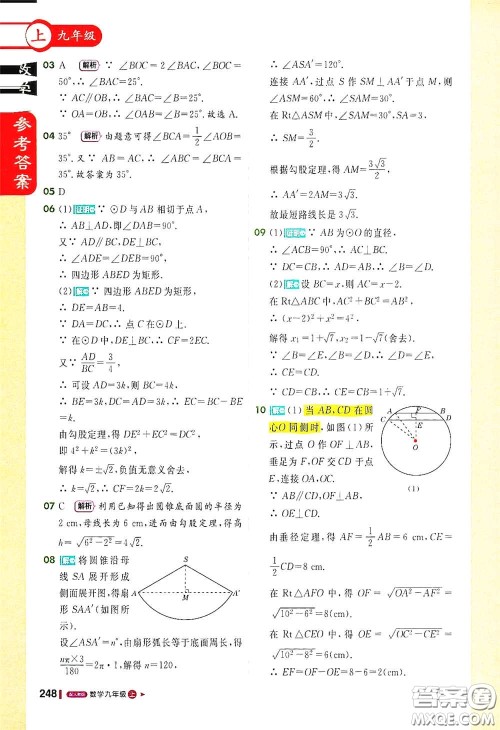 上 九年级
数学
参考答案
03 A 解析 ∵ ∠BOC=2∠BAC, ∠BOC=
50°, ∴ ∠BAC=25°.
∵ AC∥OB, ∴ ∠BAC=∠B=25°.
∵ OA=OB, ∴ ∠OAB=∠B=25°. 故选 A.
04 35° 解析 由题意可得∠BCA=1/2∠AOB=
35°. 又∵ AB=AC, ∴ ∠ABC=∠BCA=
35°. 故答案为 35°.
05 D
06 (1) 证明 ∵ ⊙D与AB相切于点A,
∴ AB⊥AD, 即∠DAB=90°.
又∵ AD∥BC, DE⊥BC,
∴ ∠ADE=∠DEB=90°.
∴ 四边形 ABED 为矩形.
(2) 解 ∵ 四边形 ABED 为矩形,
∴ DE=AB=4.
∵ DA=DC, ∴ 点C在⊙D上.
∵ 在⊙D中, DE⊥CF, ∴ CF=2EC.
又∵ AD/BC=3/4,
∴ 设AD=3k, 则BC=4k.
∴ BE=AD=3k, ∴ EC=BC-BE=
k. DC=AD=3k.
由勾股定理, 得 DE²+EC²=DC²,
即 4²+k²=(3k)².
解得 k=±√2, 负值无意义舍去.
∴ k=√2, ∴ CF=2EC=2√2.
07 C 解析 利用已知得出圆锥底面圆的半径为
2 cm, 母线长为 6 cm, 进而由勾股定理, 得圆锥的高
=√6²-2²=4√2.
08 解 将圆锥沿母
线 SA 展开形成
侧面展开图, 得扇
形 SAA′(如图所
示).
S
A
A′
M
设∠ASA′=n°, 由扇形弧长等于底面周长, 得
nπ×3/180=2π·1, 解得 n=120.
∴ ∠ASA′=120°.
连接 AA′, 过点 S 作 SM⊥AA′于点 M, 则
∠ASM=60°, ∴ ∠SAM=30°.
在Rt△ASM中, ∵ SA=3,
∴ SM=3/2.
根据勾股定理, 得 AM=3√3/2,
∴ AA′=2AM=3√3.
故最短路线长是 3√3.
09 (1) 证明 ∵ AB为⊙O的直径,
∴ ∠ACB=90°, ∴ AC⊥BC.
∵ DC=CB, ∴ AD=AB, ∴ ∠B=∠D.
(2) 解 设 BC=x, 则 AC=x-2.
在Rt△ABC中, AC²+BC²=AB²,
∴ (x-2)²+x²=4²,
解得 x₁=1+√7, x₂=1-√7(舍去).
∵ ∠B=∠E, ∠B=∠D,
∴ ∠D=∠E, ∴ CD=CE.
∵ CD=CB, ∴ CE=CB=1+√7.
10 解 (1) 当 AB,CD 在圆
心O同侧时, 如图(1)所
示, 过点 O 作 OF⊥AB,
垂足为 F, OF 交 CD 于点
E, 连接 OA, OC.
(1)
∵ AB∥CD,
∴ OE⊥CD.
由垂径定理, 得 AF=1/2AB=6 cm, CE=
1/2CD=8 cm.
在 Rt△AFO 中, 得 OF=√OA²-AF²=
√10²-6²=8(cm).
在 Rt△CEO 中, 得 OE=√OC²-CE²=
√10²-8²=6(cm).
∴ EF=OF-OE=8-6=2(cm).
248 数学九年级 上
答案圈
MXQE.COM